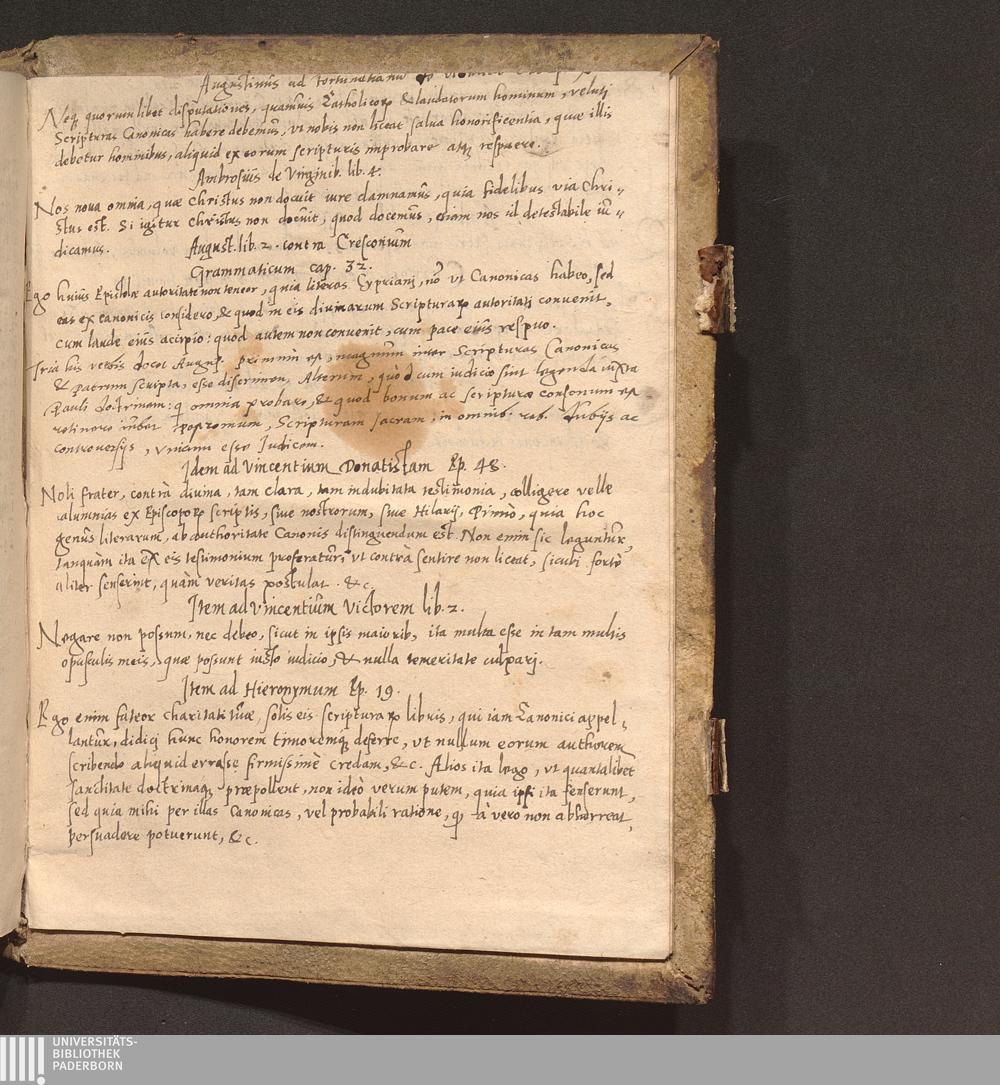 Augustinus ad Fortunatianum
Neq; quorumlibet disputationes, quamuis Catholicorum & laudatorum hominum, veluti
Scripturas Canonicas habere debemus, vt nobis non liceat salua honorificentia, quæ illis
debetur hominibus, aliquid ex eorum scripturis improbare atq; respuere.
Ambrosius de Virginib. lib. 4.
Nos noua omnia, quæ Christus non docuit iure damnamus, quia fidelibus via Chri„
stus est. Si igitur Christus non docuit, quod docemus, etiam nos id detestabile iu„
dicamus. August. lib. 2. contra Cresconium
Grammaticum cap. 32.
Ego huius Epistolæ autoritate non teneor, quia literas Cypriani, nõ vt Canonicas habeo, sed
eas ex canonicis considero, & quod in eis diuinarum Scripturarum autoritati conuenit,
cum laude eius accipio: quod autem non conuenit, cum pace eius respuo.
Tria his verbis docet August. primum est, magnum inter Scripturas Canonicas
& patrum scripta, esse discrimen, Alterum, quòd cum iudicio sint legenda iuxta
Pauli doctrinam: omnia probare, & quod bonum ac scripturæ consonum est
retinere iubet Postremum, Scripturam sacram, in omnib. reb. dubijs ac
controuersijs, vnicum esse Iudicem.
Idem ad Vincentium Donatistam Ep. 48.
Noli frater, contrà diuina, tam clara, tam indubitata testimonia, colligere velle
calumnias ex Episcoporum scriptis, siue nostrorum, siue Hilarij, Primò, quia hoc
genus literarum, ab authoritate Canonis distinguendum est. Non enim sic leguntur,
tanquàm ita ex eis testimonium proferatur, vt contrà sentire non liceat, sicubi fortè
aliter senserint, quàm veritas postulat. &c.
Item ad Vincentium Victorem lib. 2.
Negare non possum, nec debeo, sicut in ipsis maiorib, ita multa esse in tam multis
opusculis meis, quæ possunt iusto iudicio, & nulla temeritate culpari.
Item ad Hieronymum Ep. 19.
Ego enim fateor charitati tuæ, solis eis scripturarum libris, qui iam Canonici appel„
lantur, didici hunc honorem timoremq; deferre, vt nullum eorum authorem
scribendo aliquid errasse firmissimè credam, &c. Alios ita lego, vt quantalibet
sanctitate doctrinaq; præpolleant, non ideò verum putem, quia ipsi ita senserunt,
sed quia mihi per illas Canonicas, vel probabili ratione, à vero non abhorreat,
persuadere potuerunt, &c.
UNIVERSITÄTS-
BIBLIOTHEK
PADERBORN